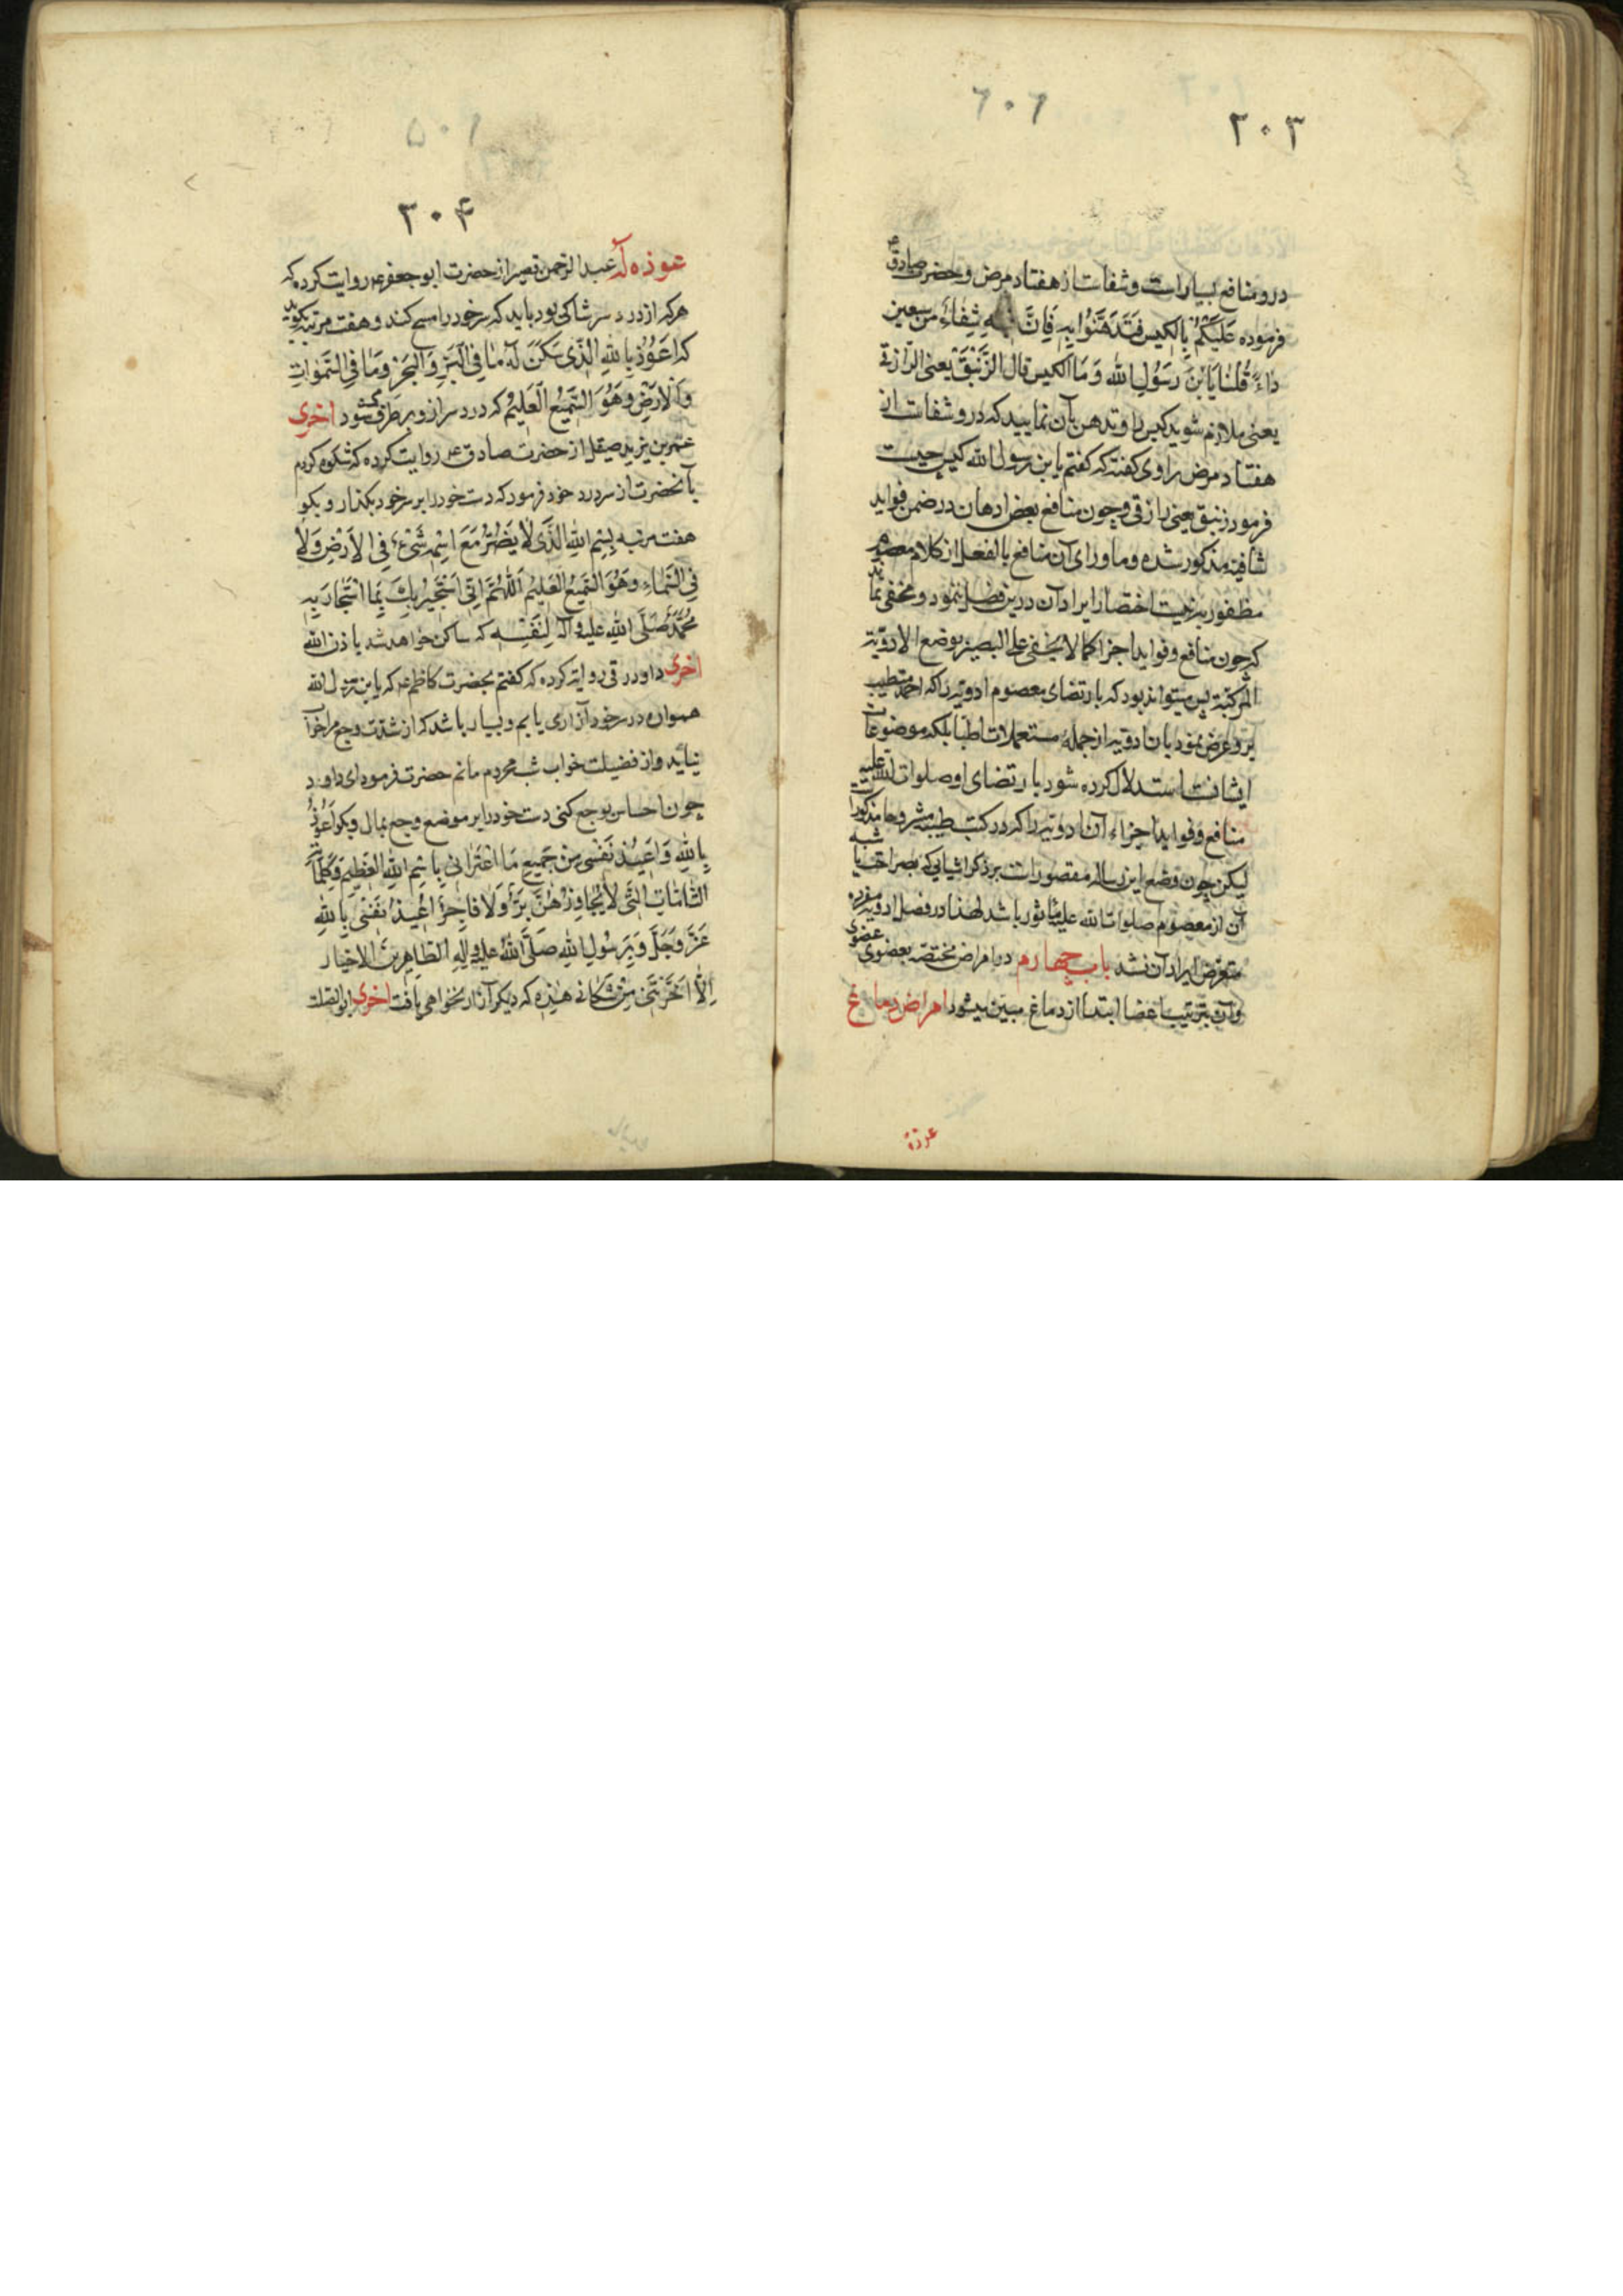 ۳۰۳
درو منافع بسیار است و شفاست از هفتاد مرض و حضرت صادق ع
فرموده عَلَیْکُمْ بِالکیس فَتَدَهَّنُوا بِهِ فَاِنَّ فیه شِفاءً من سبعین
داءً قُلنا یَابْنَ رَسُولِ الله وَ مَا الکیس قال الزَّنْبَقَ یعنی الرازقی
یعنی ملازم شوید کیس را و تدهن بآن نمایید که درو شفاست از
هفتاد مرض راوی گفته که گفتم یا بن رسول الله کیس چیست
فرمود زنبق یعنی رازقی و چون منافع بعض ادهان در ضمن فواید
شافیه مذکور شده و ماورای آن منافع بالفعل از کلام معصوم
مظفور به نیست اختصار ایراد آن درین فصل ننمود و مخفی نماند
که چون منافع و فواید اجزا کما لا یخفی علی البصیر بوضع الادویة
المرکبة پس میتواند بود که بارتضای معصوم ادویه را که احمد متطبب
برو عرض نمود بان ادویه از جمله مستعملات اطبا بلکه موضوعات
ایشانست استدلال کرده شود بارتضای او صلوات الله علیه
منافع و فواید اجزاء آن ادویه را که در کتب طبیه مشروحا مذکور است
لیکن چون وضع این رساله مقصور است بر ذکر اشیایی که بصراحت یا شبه
آن از معصوم صلوات الله علیه ماثور باشد لهذا در فصل ادویه مفرده
متعرض ایراد آن نشد باب چهارم در امراض مختصه بعضوی عضوی
و آن بترتیب اعضا ابتدا از دماغ مبین میشود امراض دماغ
عوذه
۳۰۴
عوذه له عبد الرحمن قصیر از حضرت ابو جعفر ع روایت کرده که
هر که از درد سر شاکی بود باید که سر خود را مسح کند و هفت مرتبه بگوید
که اَعُوْذُ بِاللهِ الَّذی سَکَنَ لَهُ مَا فِی الْبَرِّ وَ الْبَحْرِ وَ مَا فِی السَّمٰوَاتِ
وَ الْاَرْضِ وَ هُوَ السَّمِیْعُ الْعَلِیْمُ که درد سر از و بر طرف شود اخری
عمر بن یزید صیقل از حضرت صادق ع روایت کرده که شکوه کردم
بآنحضرت از سر درد خود فرمود که دست خود را بر سر خود بگذار و بگو
هفت مرتبه بِسْمِ اللهِ الَّذی لَا یَضُرُّ مَعَ اسْمِهِ شَیْءٌ فِی الْاَرْضِ وَ لَا
فِی السَّمَاءِ وَ هُوَ السَّمِیْعُ الْعَلِیْمُ اَللّٰهُمَّ اِنّی اَسْتَجِیْرُ بِکَ بِمَا اسْتَجَارَ بِهِ
مُحَمَّدٌ صَلَّی اللهِ عَلَیْهِ وَ آلِه لِنَفْسِهِ که ساکن خواهد شد باذن الله
اخری داود رقی روایة کرده که گفتم بحضرت کاظم ع که یا بن رسول الله
همواره در سر خود آزاری یابم و بسیار باشد که از شدت وجع مرا خواب
نیاید و از فضیلت خواب شب محروم مانم حضرت فرمود ای داود
چون احساس بوجع کنی دست خود را بر موضع وجع بمال و بگو اَعُوْذُ
بِاللهِ وَ اُعِیْذُ نَفْسی مِنْ جَمِیْعِ مَا اعْتَرَانی بِاسْمِ اللهِ الْعَظِیْمِ وَ کَلِمَاتِهِ
التَّامَّاتِ الَّتی لَا یُجَاوِزُهُنَّ بَرٌّ وَ لَا فَاجِرٌ اُعِیْذُ نَفْسی بِاللهِ
عَزَّ وَ جَلَّ وَ بِرَسُولِ اللهِ صَلَّی اللهُ عَلَیْهِ وَ آلِهِ الطَّاهِرِیْنَ الاخیار
اِلَّا اَجَرْتَنی مِنْ شَکَاتی هٰذِهِ که دیگر آزار نخواهی یافت اخری ابو الصلت